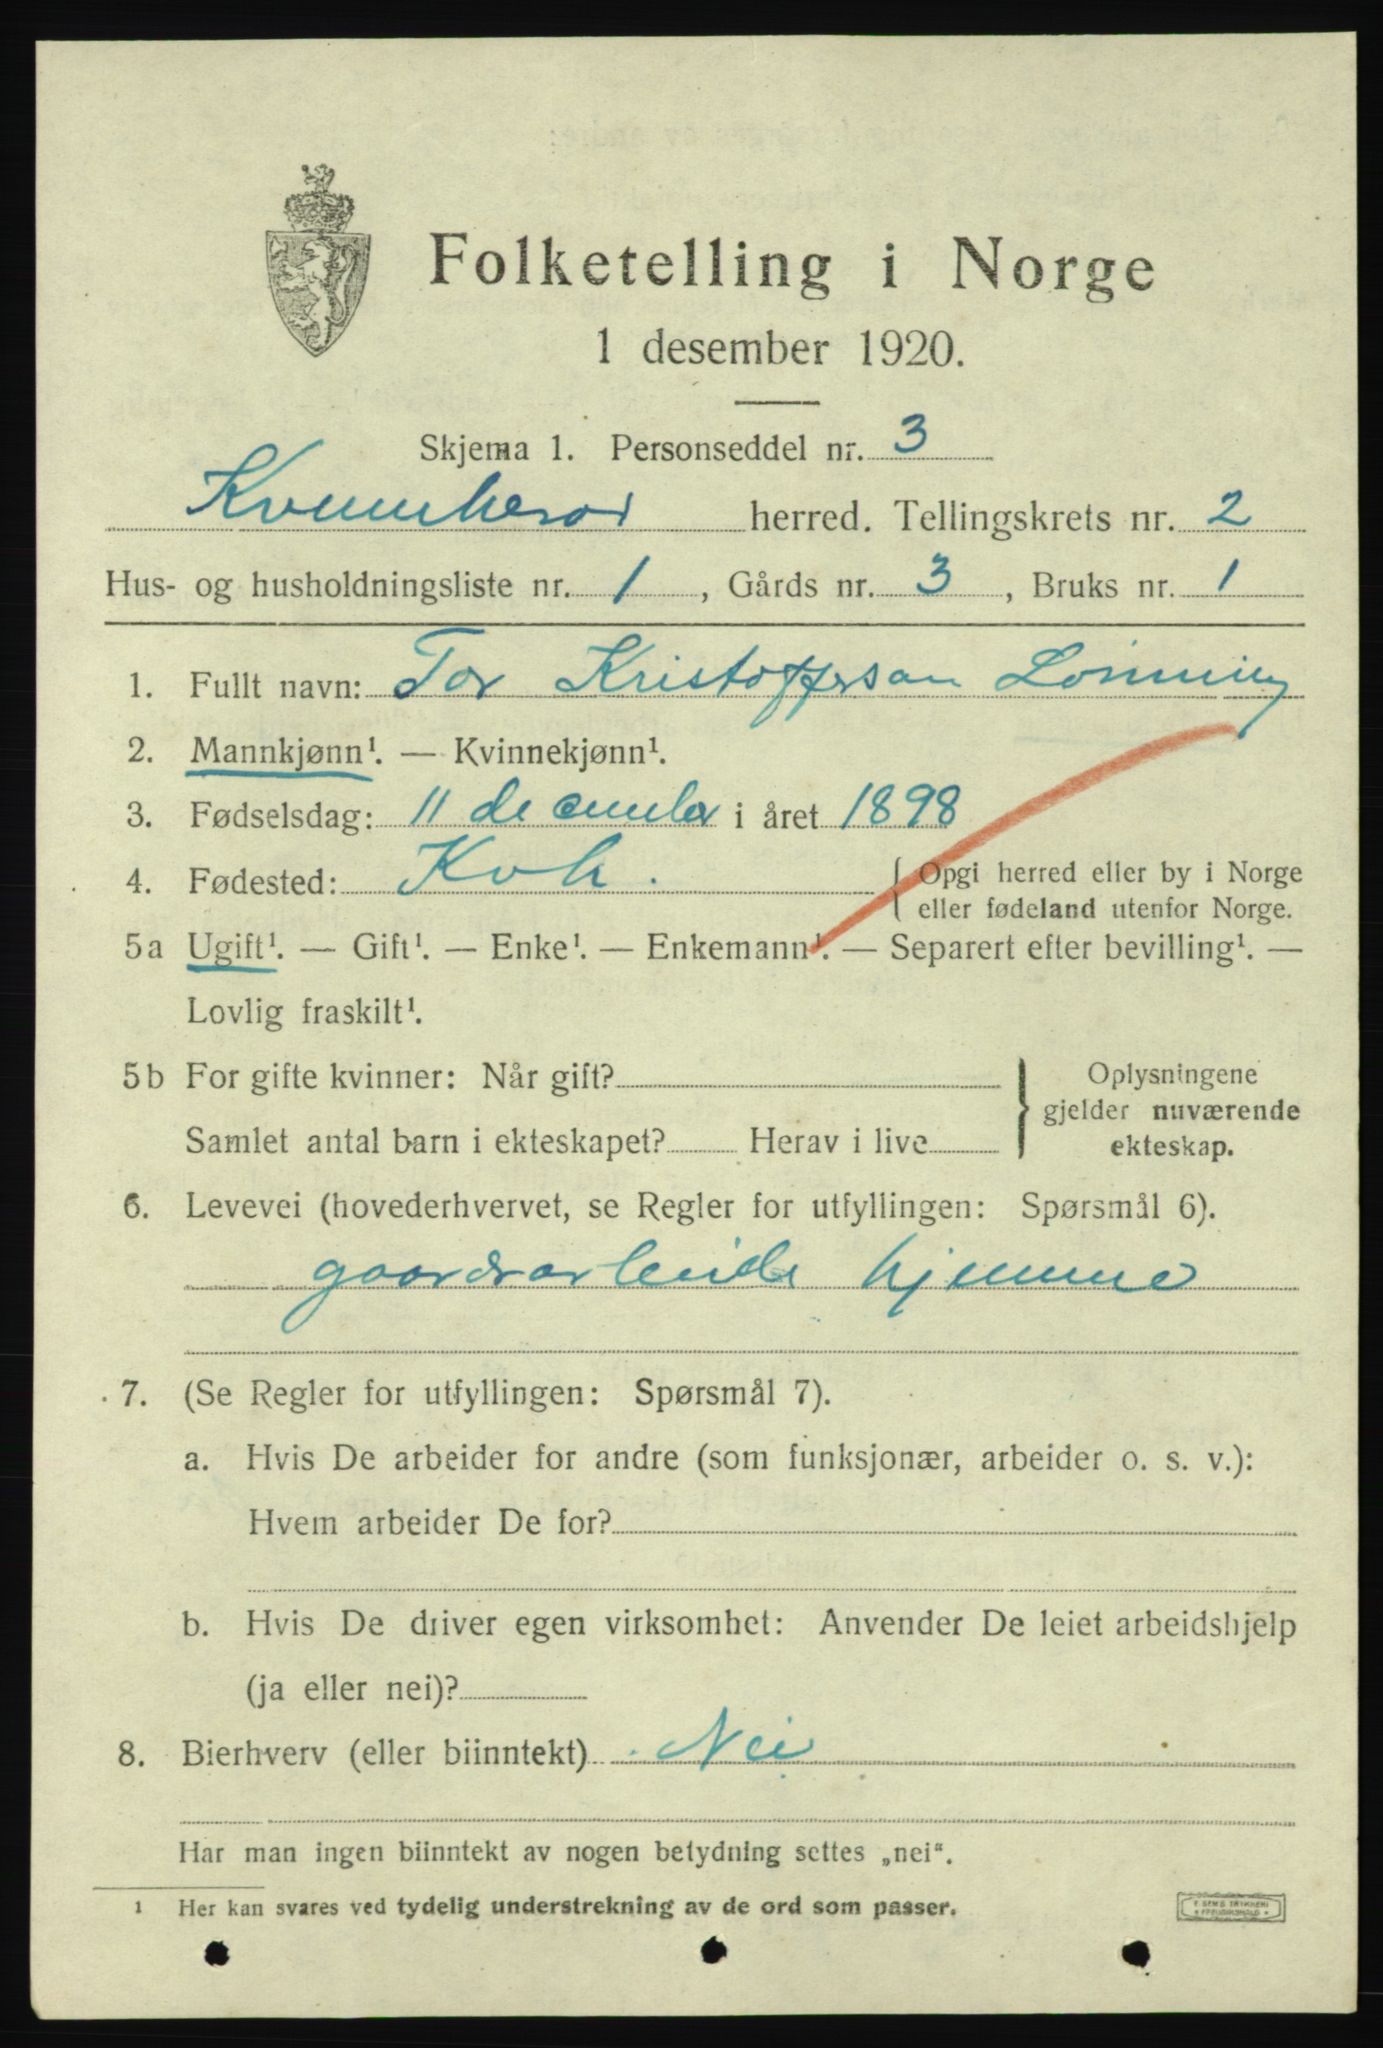 Folketelling i Norge
1 desember 1920.
Skjema 1. Personseddel nr. 3
Kvinnherad herred. Tellingskrets nr. 2
Hus- og husholdningsliste nr. 1, Gårds nr. 3, Bruks nr. 1
1. Fullt navn: Tor Kristoffersen Lønning
2. Mannkjønn¹. — Kvinnekjønn¹.
3. Fødselsdag: 11 december i året 1898
4. Fødested: Kvh. { Opgi herred eller by i Norge
eller fødeland utenfor Norge.
5a Ugift¹. — Gift¹. — Enke¹. — Enkemann¹. — Separert efter bevilling¹. —
Lovlig fraskilt¹.
5b For gifte kvinner: Når gift? } Oplysningene
gjelder nuværende
Samlet antal barn i ekteskapet? Herav i live ekteskap.
6. Levevei (hovederhvervet, se Regler for utfyllingen: Spørsmål 6).
gaardsarbeide hjemme
7. (Se Regler for utfyllingen: Spørsmål 7).
a. Hvis De arbeider for andre (som funksjonær, arbeider o. s. v.):
Hvem arbeider De for?
b. Hvis De driver egen virksomhet: Anvender De leiet arbeidshjelp
(ja eller nei)?
8. Bierhverv (eller biinntekt) Nei
Har man ingen biinntekt av nogen betydning settes „nei“.
1 Her kan svares ved tydelig understrekning av de ord som passer.